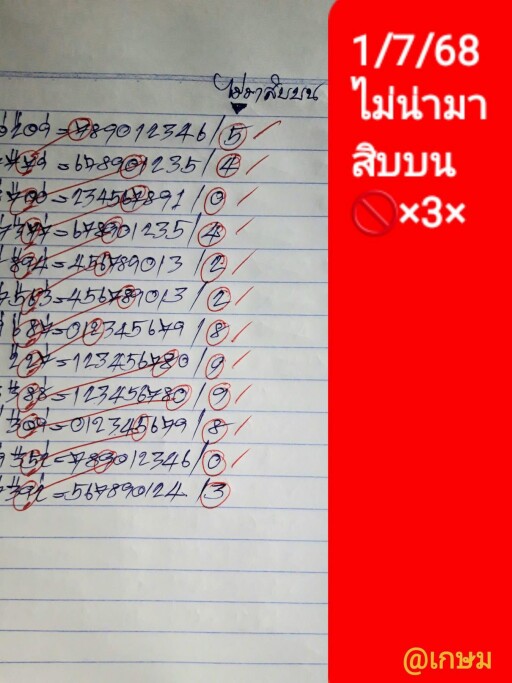 ไม่มาสิบบน
209=789012346/5
779=678901235/4
700=234567891/0
377=678901235/4
894=456789013/2
7563=456789013/2
687=012345679/8
227=123456780/9
388=123456780/9
309=012345679/8
352=789012346/0
392=567890124/3
1/7/68
ไม่น่ามา
สิบบน
🚫×3×
@เกษม